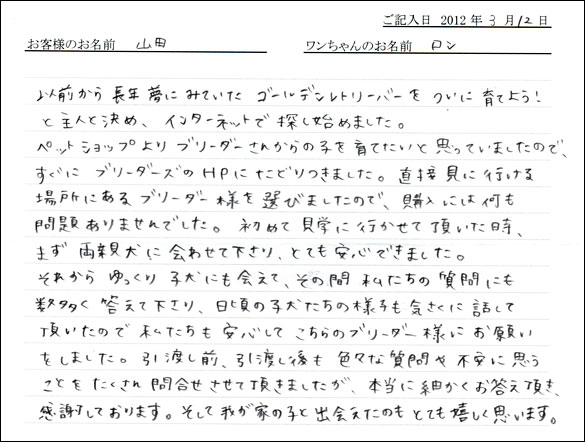 ご記入日 2012 年 3 月 12 日
お客様のお名前 山田 ワンちゃんのお名前 ロン
以前から長年夢にみていた ゴールデンレトリーバーを ついに育てよう!
と主人と決め、インターネットで探し始めました。
ペットショップよりブリーダーさんからの子を育てたいと思っていましたので、
すぐに ブリーダーズのHPにたどりつきました。直接見に行ける
場所にあるブリーダー様を選びましたので、購入には何も
問題ありませんでした。初めて見学に行かせて頂いた時、
まず両親犬に会わせて下さり、とても安心できました。
それからゆっくり子犬にも会えて、その間私たちの質問にも
数多く答えて下さり、日頃の子犬たちの様子も気さくに話して
頂いたので私たちも安心してこちらのブリーダー様にお願い
をしました。引渡し前、引渡し後も色々な質問や不安に思う
ことをたくさん問合せさせて頂きましたが、本当に細かくお答え頂き、
感謝しております。そして我が家の子と出会えたのもとても嬉しく思います。